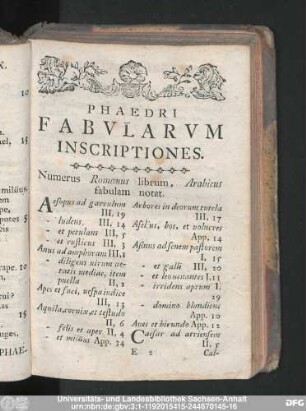 PHAEDRI
FABVLARVM
INSCRIPTIONES.
Numerus Romanus librum, Arabicus
fabulam notat.
Aesopus ad garrulum
III. 19
- ludens. III, 14
- et petulans III, 5
- et rusticus III, 3
Anus ad amphoram III, 1
- diligens virum aetatis mediae, item
puella II, 2
Apes et fuci, vespa iudice
III, 13
Aquila, cornix, et testudo
II, 6
- felis et aper II, 4
et milius App. 24
Arbores in deorum tutela
III. 17
Asellus, bos, et volucres
App. 14
Asinus ad senem pastorem
I, 15
- et galli III, 20
- et leo venantes I. 11
- irridens aprum I.
29
- domino blandiens
App. 10
Aues et hirundo App. 12
Caesar ad atriensem
II, 5
E 2 Cal-
PHAE-
Universitäts- und Landesbibliothek Sachsen-Anhalt
urn:nbn:de:gbv:3:1-1192015415-244670145-16
DFG